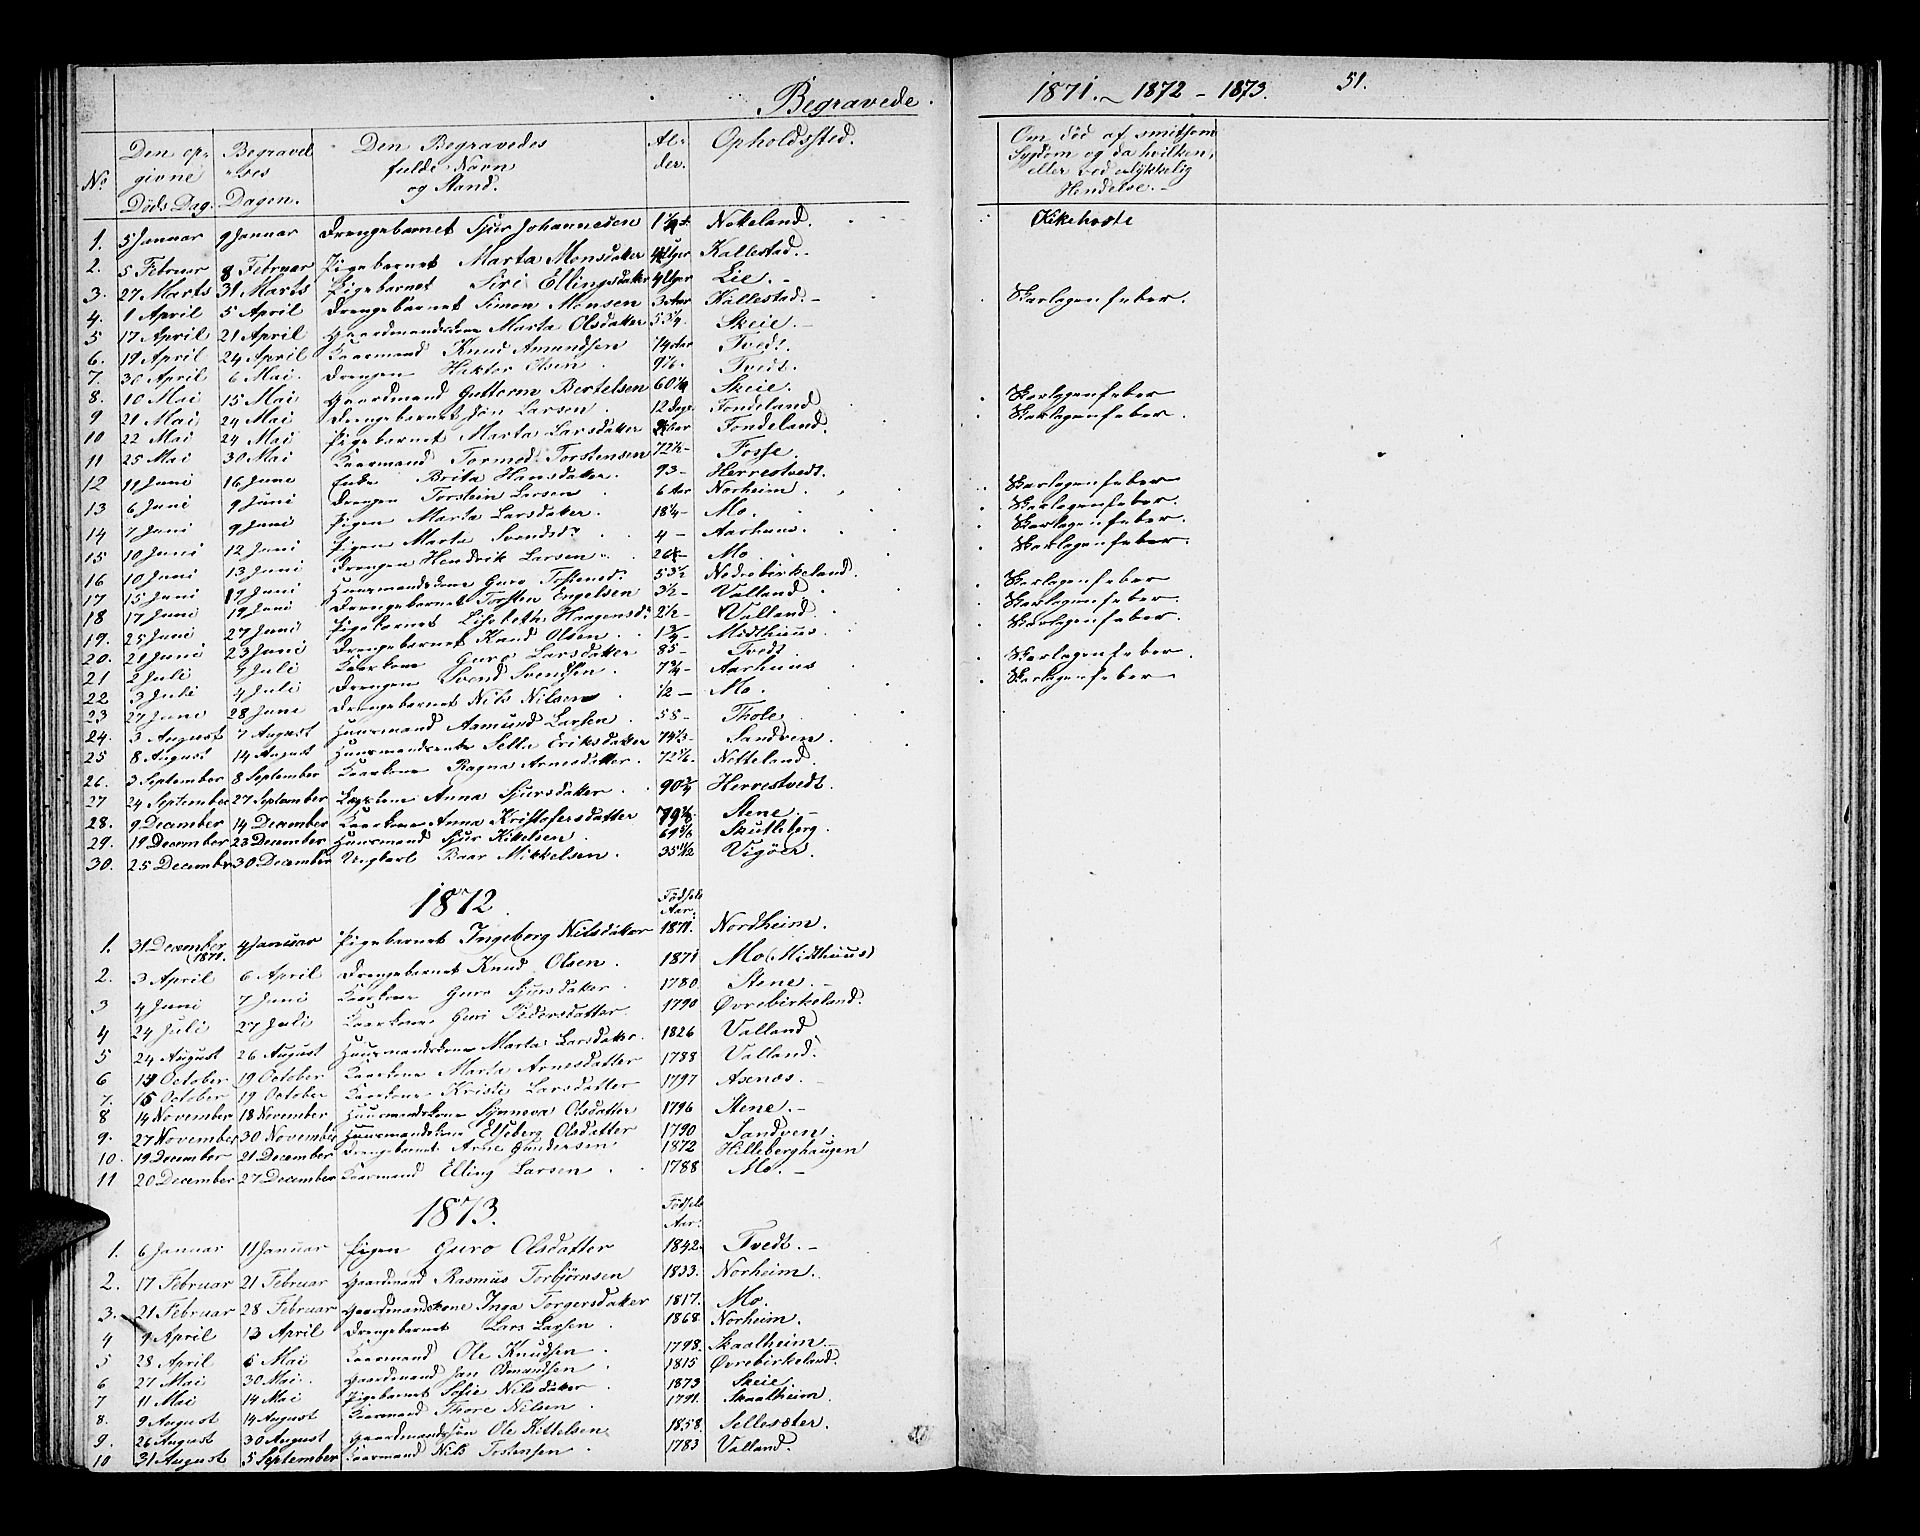 Begravede.
1871. - 1872 - 1873.
51.
No
Den opgivne Döds Dag.
Begravelses Dagen.
Den Begravedes fulde Navn og Stand.
Alder.
Opholdssted.
Om död af smitsom Sygdom og da hvilken, eller ved ulykkelig Hendelse.-
1. 5 Januar 9 Januar Drengebarnet Sjur Johannesen Neteland. Kikehoste
2. 5 Februar 8 Februar Pigebarnet Marta Monsdatter Kallestad.-
3. 27 Marts 31 Marts Pigebarnet Siri Ellingsdatter Lie.-
4. 1 April 5 April Drengebarnet Simon Monsen 3 Aar Kallestad.- Skarlagensfeber.
5 17 April 21 April Gaardmandskone Marta Olsdatter 53¼. Skeie.-
6. 19 April 24 April Kaarmand Knud Amundsen Tvedt.
7. 30 April 6 Mai. Drengen Hektor Olsen 9½. Tvedt.
8. 10 Mai 15 Mai Gaardmand Guttorm Bertelsen Skeie.
9 21 Mai 24 Mai Drengebarnet Jon Larsen. 12 Dage Fondeland. Skarlagensfeber
10 22 Mai 24 Mai Pigebarnet Marta Larsdatter Fondeland. Skarlagensfeber.
11 25 Mai 30 Mai Kaarmand Tormod Torstensen 72½- Fosse.
12 11 Juni 16 Juni Enke Brita Hansdatter. 93- Herrestvedt.
13 6 Juni 9 Juni Drengen Torstein Larsen 6 Aar Norheim. Skarlagensfeber
14 7 Juni 9 Juni Pigen Marta Larsdatter. 18¼- Mo. Skarlagensfeber.
15 10 Juni 12 Juni Pigen Marta Svendsdr 4 - Aarhuus. Skarlagensfeber.
16 10 Juni 13 Juni Drengen Hendrik Larsen Mo. Skarlagensfeber.
17 15 Juni 19 Juni Huusmandskone Guro Tostensd. 53½ Nedrebirkeland.
18 17 Juni 19 Juni Drengebarnet Torsten Engelsen 3½- Valland. Skarlagensfeber
19. 25 Juni 27 Juni Pigebarnet Lisbeth Haagensdr 2½- Valland. Skarlagensfeber.
20. 21 Juni 23 Juni Drengebarnet Knud Olsen. 1¾- Midthuus. Skarlagensfeber.
21 2 Juli 7 Juli Kaarkone Guro Larsdatter 85- Tvedt
22 3 Juli 4 Juli Drengen Svend Svendsen 7¾- Aarhuus Skarlagensfeber.
23 27 Juni 28 Juni Drengebarnet Nils Nilsen ½- Mo. Skarlagensfeber
24. 3 August 7 August Huusmand Aamund Larsen. 58- Thole.
25 8 August 14 August Huusmandsenke Sella Eriksdatter 74⅓- Sandven.
26. 3 September 8 September Kaarkone Ragna Arnesdatter. Netteland.
27 24 September 27 September Anna Sjursdatter. 90¾ Herrestvedt.
28. 9 December 14 December Kaarkone Anna Kristofersdatter Stene.-
29. 19 December 23 December Huusmand Sjur Kittelsen. Skutleberg.
30. 25 December 30 December Ungkarl Baar Mikkelsen. Vigöer.
1872.
Födsels Aar.
1. 31 December 1871. 4 Januar Pigebarnet Ingeborg Nilsdatter 1871. Nordheim.
2. 3 April 6 April Drengebarnet Knud Olsen. 1871 Mo (Midthuus)
3 4 Juni 7 Juni Kaarkone Guro Sjursdatter 1780. Stene.-
4 24 Juli 27 Juli Kaarkone Guri Pedersdatter 1790 Øvrebirkeland.
5 24 August 26 August Huusmandskone Marta Larsdatter. 1826 Valland
6 14 October 19 October Kaarkone Marta Arnesdatter 1788 Valland.
7. 15 October 19 October Kaarkone Kristi Larsdatter 1797 Asenæs.
8 14 November 18 November Huusmandskone Synneva Olsdatter 1796 Stene.-
9. 27 November 30 November Huusmandskone Elseberg Olsdatter 1790 Sandven.
10. 19 December 21 December Drengebarnet Arne Gundersen 1872 Hilleberghaugen
11 20 December 27 December Kaarmand Elling Larsen. 1788 Mo.-
1873.
Födsels Aar:
1. 6 Januar 11 Januar Pigen Guro Olsdatter 1842. Tvedt.-
2. 17 Februar 21 Februar Gaardmand Rasmus Torbjörnsen 1833. Norheim.
3. 21 Februar 28 Februar Gaardmandskone Inga Torgersdatter 1817. Mo.
4 9 April 13 April Drengebarnet Lars Larsen. 1868. Norheim.
5 28 April 6 Mai Kaarmand Ole Knudsen. 1798. Skaalheim-
6 27 Mai 30 Mai. Gaardmand Jan Osmundsen. 1815 Øvrebirkeland.
7 11 Mai 14 Mai Pigebarnet Sofie Nilsdatter. 1873 Skeie.
8. 9 August 14 August Kaarmand Thore Nilsen. 1791. Skaalheim.
9. 26 August 30 August Gaardmandssön Ole Kittelsen. 1858. Selleseter.
10 31 August 5 September Kaarmand Nils Tostensen. 1783 Valland.